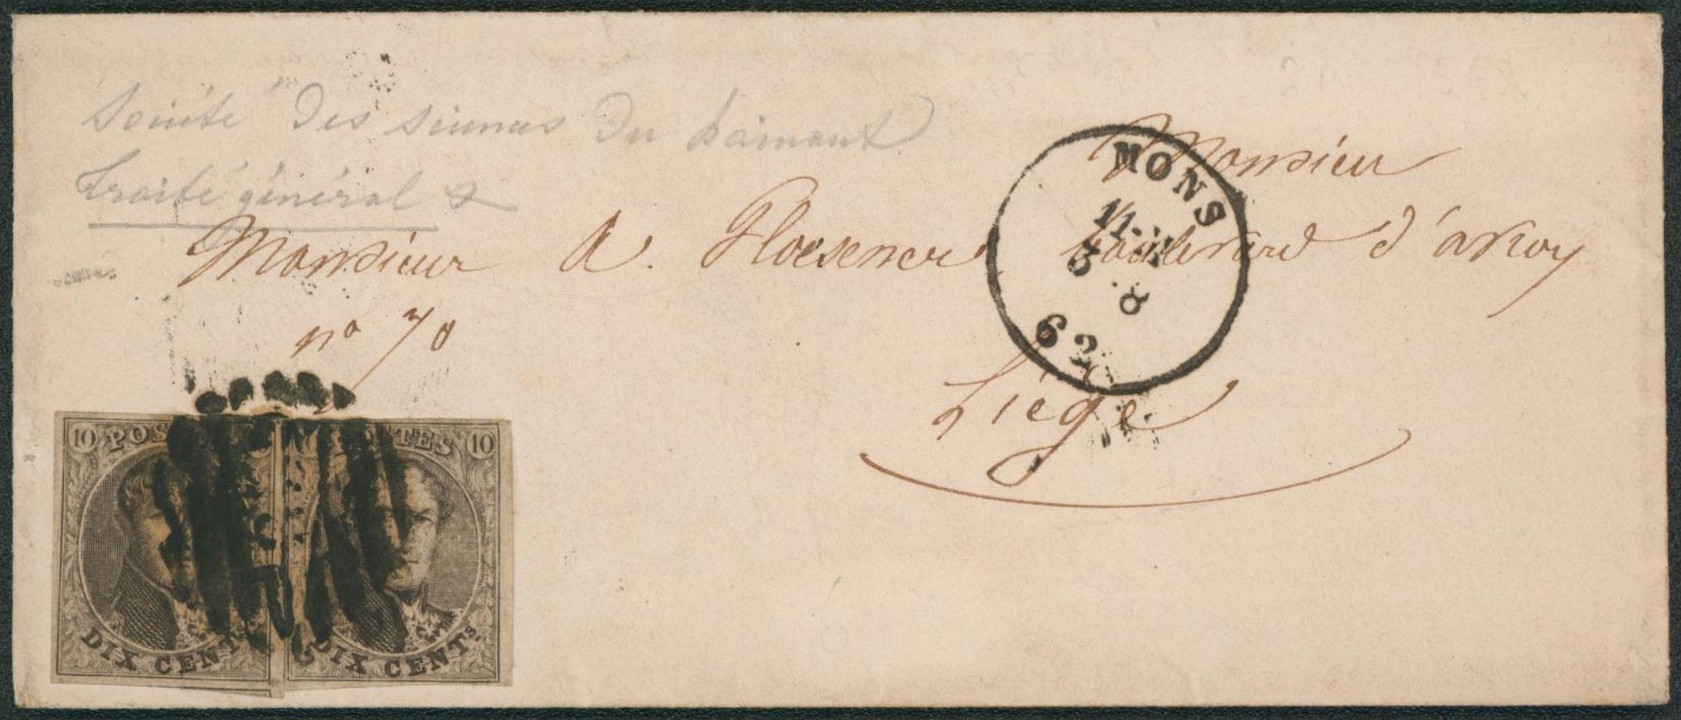 Société des usines du hainaut
traité général &
Monsieur
Monsieur A. Gloesener, boulevard d'avroy
no 70
Liége
MONS
11-M
5 . 8
62
10 POSTES 10
DIX CENTS
DIX CENTs